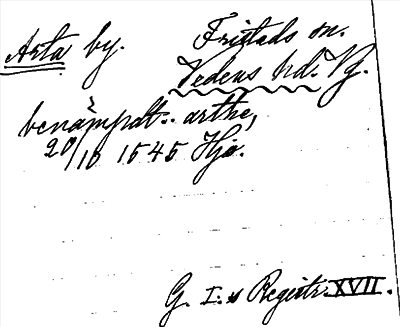 Arta by. Fristads sn.
Vedens hd. Vg.
benämndt: arthe,
20/10 1545 Hjo.
G. I:s Registr. XVII.